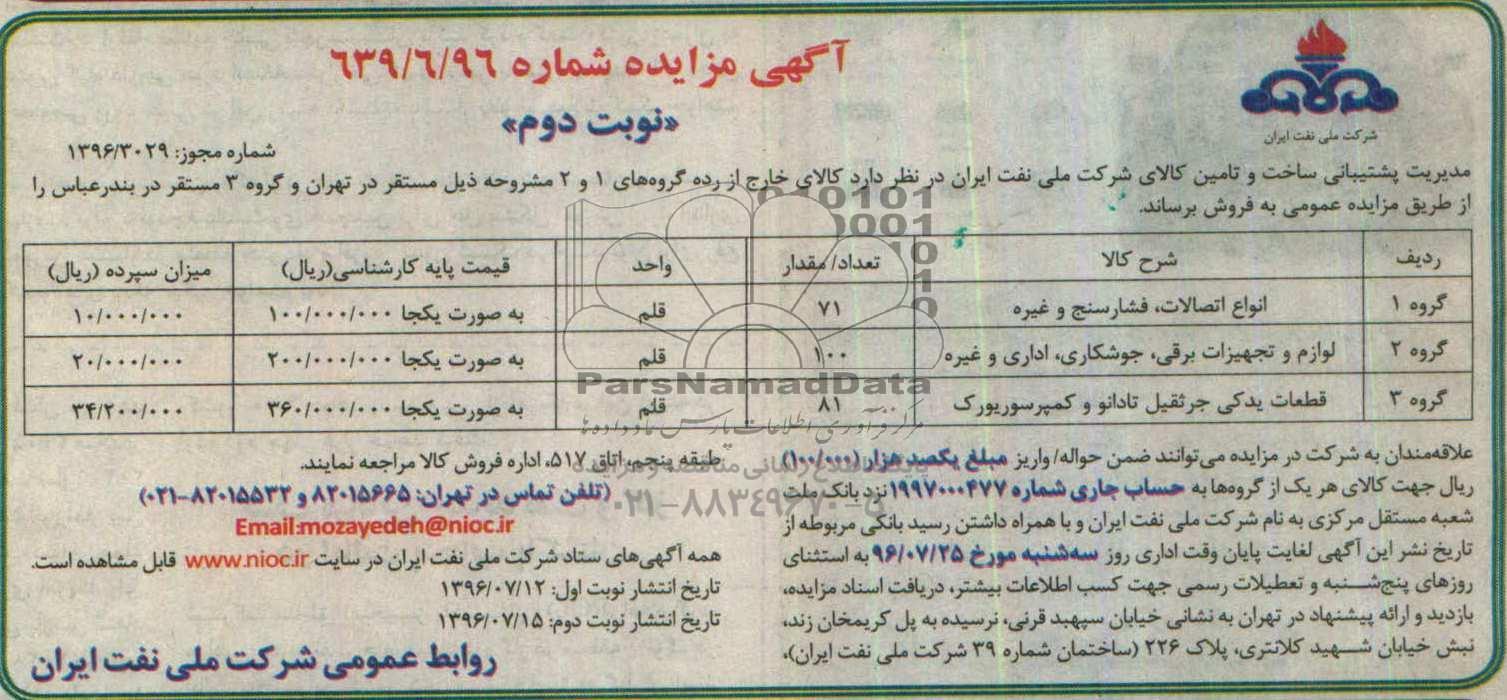 آگهی مزایده شماره ۶۳۹/۶/۹۶
«نوبت دوم»
شرکت ملی نفت ایران
شماره مجوز: ۱۳۹۶/۳۰۲۹
مدیریت پشتیبانی ساخت و تامین کالای شرکت ملی نفت ایران در نظر دارد کالای خارج از رده گروه‌های ۱ و ۲ مشروحه ذیل مستقر در تهران و گروه ۳ مستقر در بندرعباس را
از طریق مزایده عمومی به فروش برساند.
ردیف شرح کالا تعداد/ مقدار واحد قیمت پایه کارشناسی(ریال) میزان سپرده (ریال)
گروه ۱ انواع اتصالات، فشارسنج و غیره ۷۱ قلم به صورت یکجا ۱۰۰/۰۰۰/۰۰۰ ۱۰/۰۰۰/۰۰۰
گروه ۲ لوازم و تجهیزات برقی، جوشکاری، اداری و غیره ۱۰۰ قلم به صورت یکجا ۲۰۰/۰۰۰/۰۰۰ ۲۰/۰۰۰/۰۰۰
گروه ۳ قطعات یدکی جرثقیل تادانو و کمپرسوریورک ۸۱ قلم به صورت یکجا ۳۶۰/۰۰۰/۰۰۰ ۳۴/۲۰۰/۰۰۰
ParsNamadData
مرکز فرآوری اطلاعات پارس نماد داده ها
۰۲۱-۸۸۳۴۹۶۷۰-۵
علاقه‌مندان به شرکت در مزایده می‌توانند ضمن حواله/ واریز مبلغ یکصد هزار (۱۰۰/۰۰۰)
ریال جهت کالای هر یک از گروه‌ها به حساب جاری شماره ۱۹۹۷۰۰۰۴۷۷ نزد بانک ملت
شعبه مستقل مرکزی به نام شرکت ملی نفت ایران و با همراه داشتن رسید بانکی مربوطه از
تاریخ نشر این آگهی لغایت پایان وقت اداری روز سه‌شنبه مورخ ۹۶/۰۷/۲۵ به استثنای
روزهای پنج‌شنبه و تعطیلات رسمی جهت کسب اطلاعات بیشتر، دریافت اسناد مزایده،
بازدید و ارائه پیشنهاد در تهران به نشانی خیابان سپهبد قرنی، نرسیده به پل کریمخان زند،
نبش خیابان شهید کلانتری، پلاک ۲۲۶ (ساختمان شماره ۳۹ شرکت ملی نفت ایران)،
طبقه پنجم، اتاق ۵۱۷، اداره فروش کالا مراجعه نمایند.
(تلفن تماس در تهران: ۸۲۰۱۵۶۶۵ و ۸۲۰۱۵۵۳۲-۰۲۱)
Email:mozayedeh@nioc.ir
همه آگهی‌های ستاد شرکت ملی نفت ایران در سایت www.nioc.ir قابل مشاهده است.
تاریخ انتشار نوبت اول: ۱۳۹۶/۰۷/۱۲
تاریخ انتشار نوبت دوم: ۱۳۹۶/۰۷/۱۵
روابط عمومی شرکت ملی نفت ایران